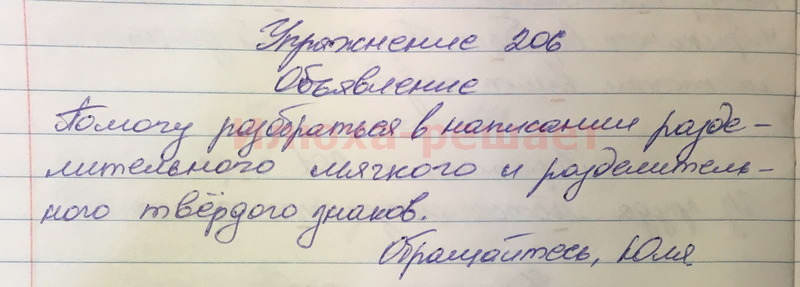 Упражнение 206
Объявление
Помогу разобраться в написании разде-
лительного мягкого и разделитель-
ного твёрдого знаков.
Обращайтесь, Юля
илюха-решает